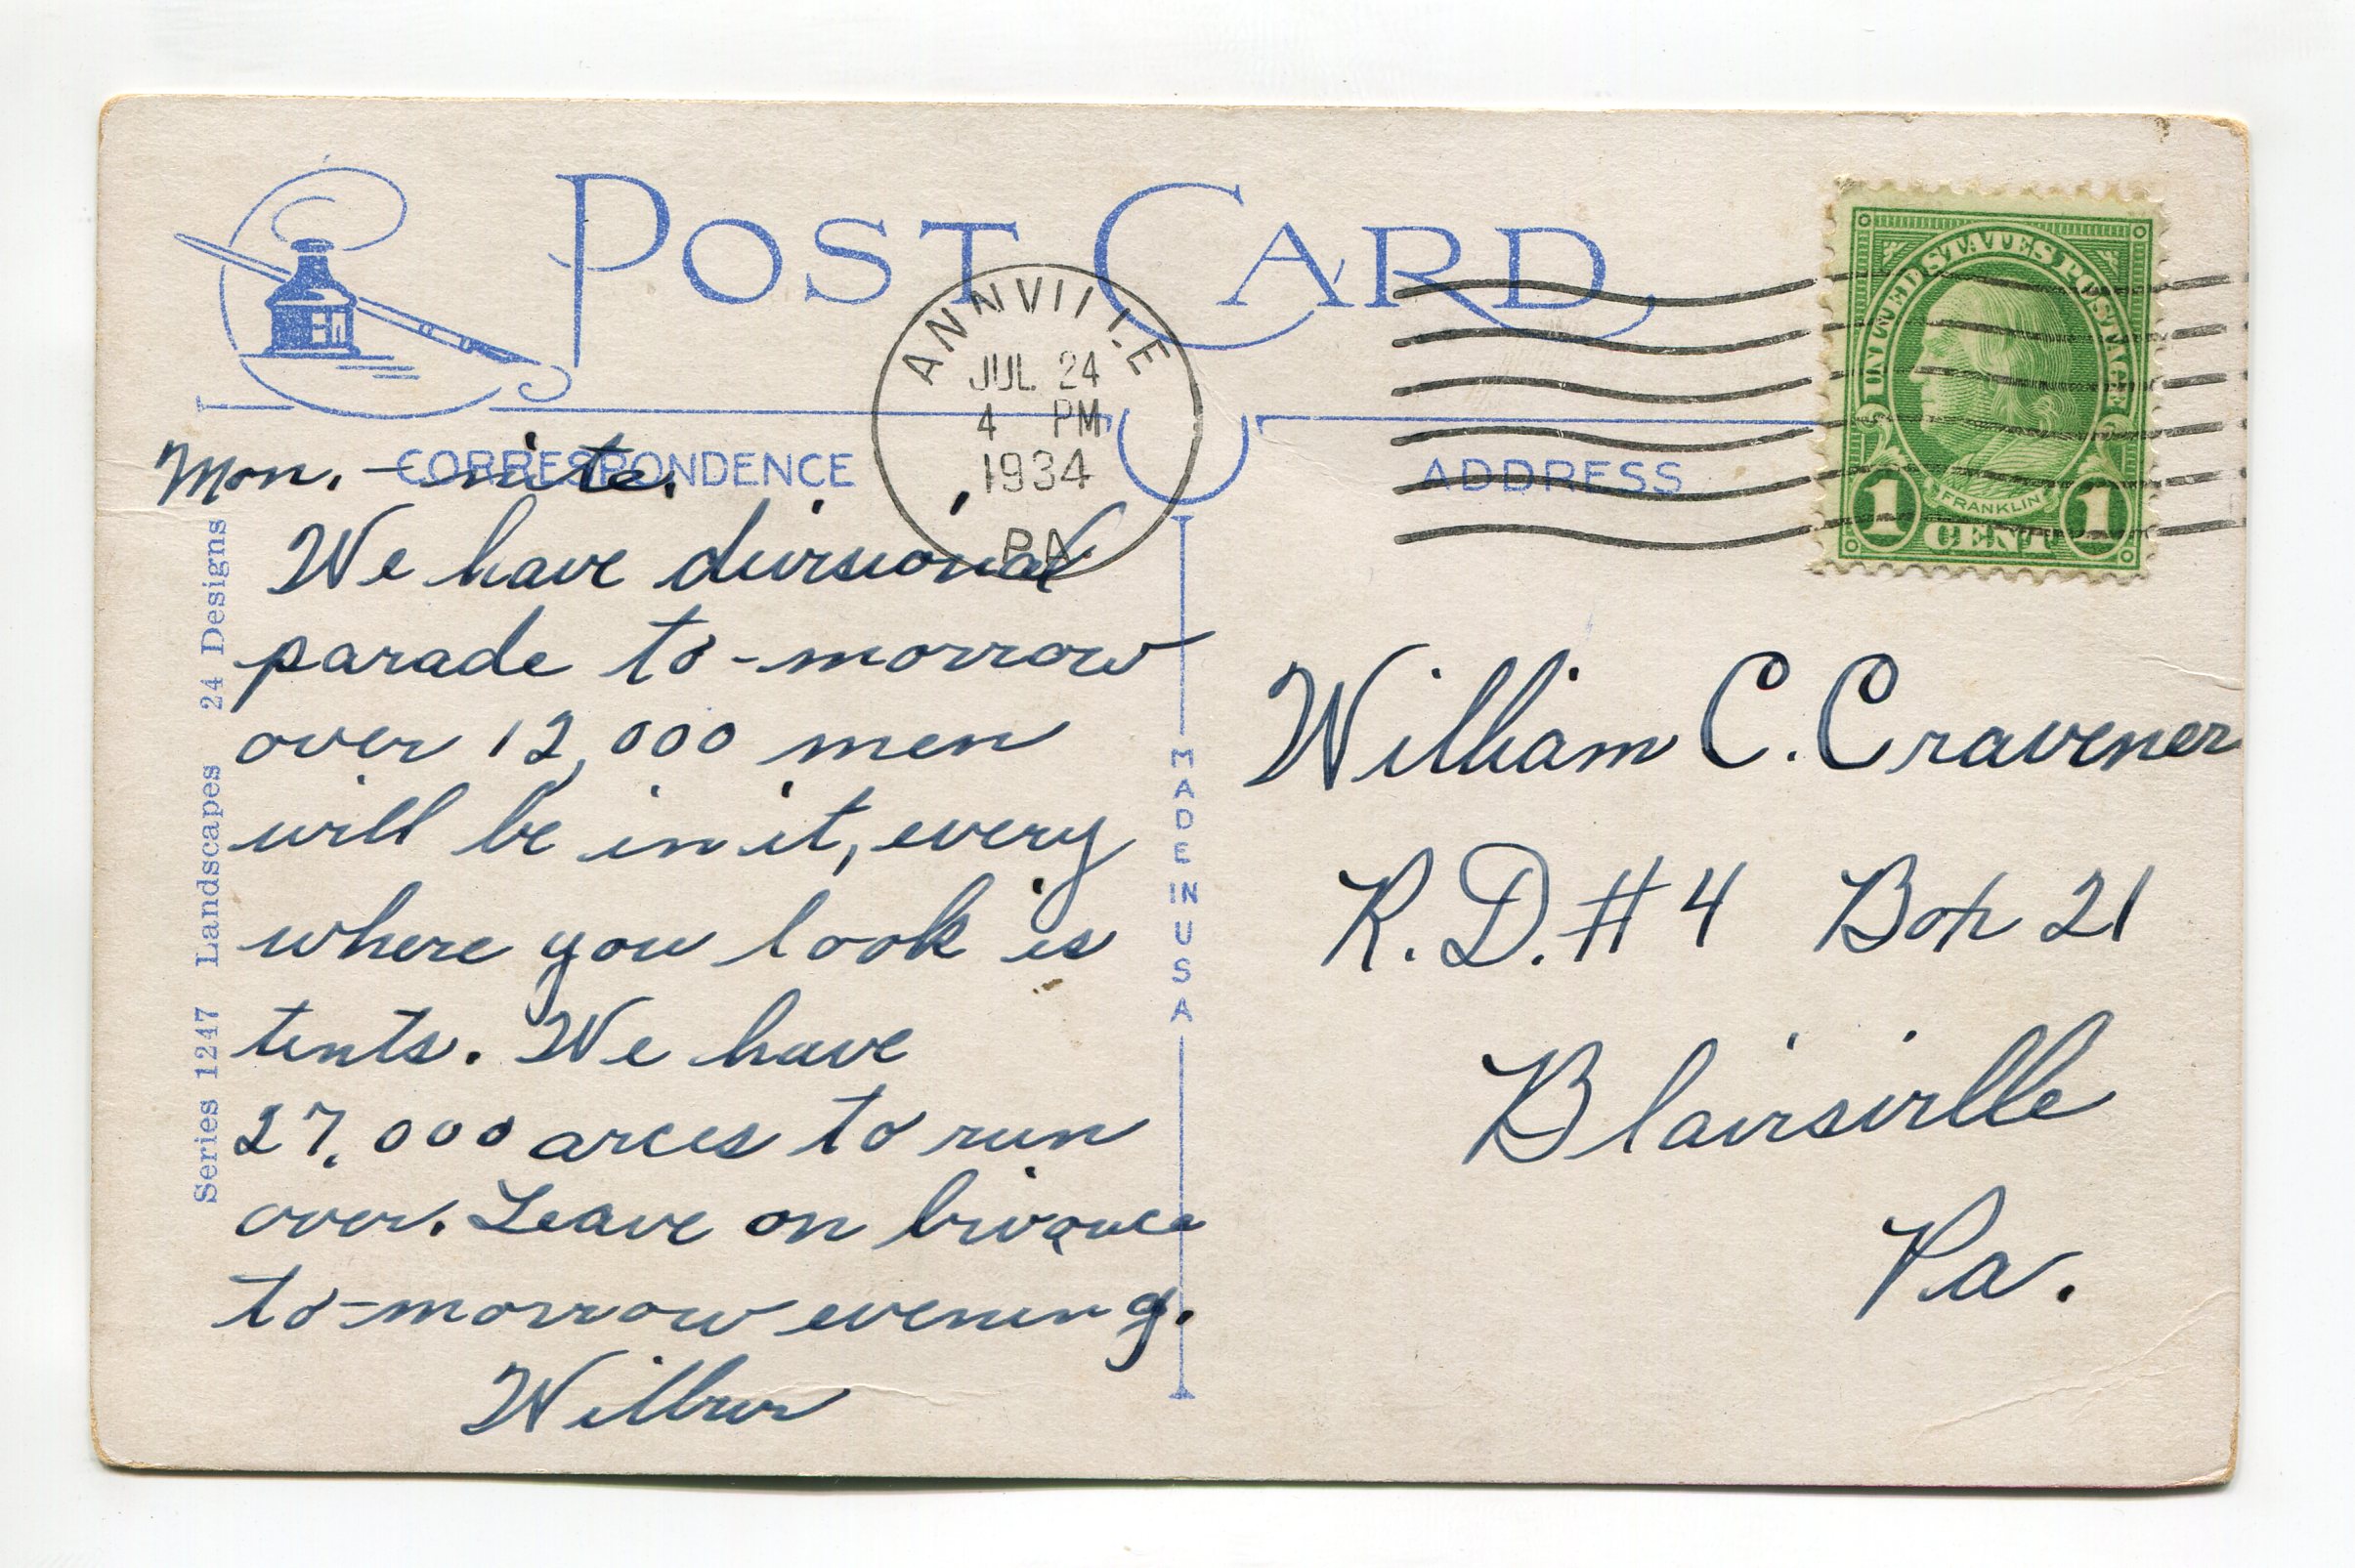 POST CARD
ANNVILLE
JUL 24
4 PM
1934
PA
UNITED STATES POSTAGE
FRANKLIN
1 CENT 1
CORRESPONDENCE
ADDRESS
Mon. - nite.
We have divisional
parade to-morrow
over 12,000 men
will be in it, every
where you look is
tents. We have
27,000 arces to run
over. Leave on bivouce
to-morrow evening.
Wilbur
Series 1247 Landscapes 24 Designs
MADE IN USA
William C. Cravener
R.D. #4 Box 21
Blairsville
Pa.